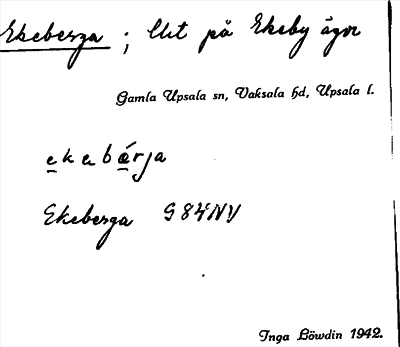 Ekeberga ; Ut på Ekeby ägor
Gamla Upsala sn, Vaksala hd, Upsala l.
ekebárja
Ekeberga G84NV
Inga Löwdin 1942.